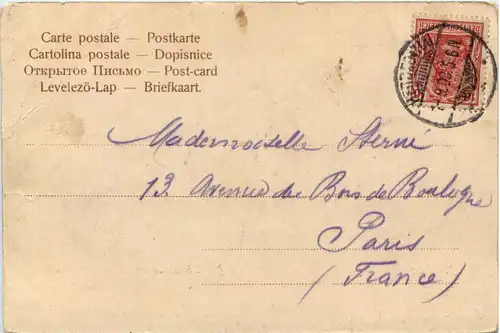 Carte postale — Postkarte
Cartolina postale — Dopisnice
Открытое Письмо — Post-card
Levelezö-Lap — Briefkaart.
Mademoiselle Sterné
13 Avenue du Bois de Boulogne
Paris
(France)